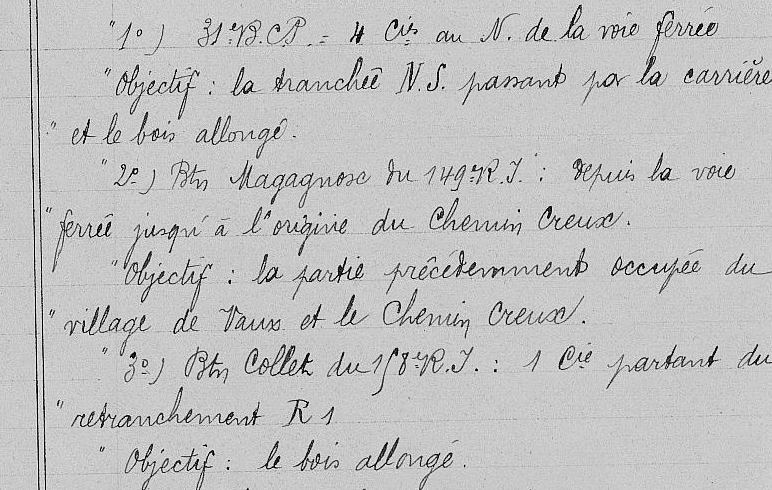 "1º) 31e B.C.P. = 4 Cies au N. de la voie ferrée
"Objectif : la tranchée N.S. passant par la carrière
" et le bois allongé.
"2º) Btn Magagnosc du 149e R.I. : depuis la voie
" ferrée jusqu'à l'origine du Chemin Creux.
"Objectif : la partie précédemment occupée du
" village de Vaux et le Chemin Creux.
" 3º) Btn Collet du 158e R.I. : 1 Cie partant du
" retranchement R 1
" Objectif : le bois allongé.